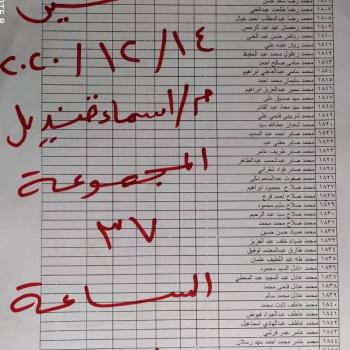 ١٨٠٧ محمد رضا طلعت عبدالغني
١٨٠٨ محمد رضا عبدالمطلب احمد خيال
١٨٠٩ محمد رمضان عيد عبد الرحمن
١٨١٠ محمد رياض حسن عبد الغني
١٨١١ محمد زيان عبده علي
١٨١٢ محمد زغلول محمد عبد الحفيظ
١٨١٣ محمد سامي صالح احمد
١٨١٤ محمد سامي عبدالعاطي ابراهيم
١٨١٥ محمد سليمان محمد احمد
١٨١٦ محمد سمير عبدالعزيز ابراهيم
١٨١٧ محمد سيد صديق علي
١٨١٨ محمد سيد محمد عبد القادر
١٨١٩ محمد شربيني فتحي علي
١٨٢٠ محمد شعبان عطاالله سيد
١٨٢١ محمد صابر احمد عبد المجيد
١٨٢٢ محمد صابر حنفي عبد
١٨٢٣ محمد صابر ظريف عامر
١٨٢٤ محمد صابر عبدالحميد عبدالظاهر
١٨٢٥ محمد صابر فؤاد شعراني
١٨٢٦ محمد صفوت عبدالمنعم زكي
١٨٢٧ محمد صلاح محمود ابراهيم
١٨٢٨ محمد صلاح احمد فرج
١٨٢٩ محمد صلاح سليم محمود
١٨٣٠ محمد صلاح سيد عبد الرحيم
١٨٣١ محمد صلاح محمد محمد
١٨٣٢ محمد ضياء حسن حسين
١٨٣٣ محمد ضياء خلف عبد العزيز
١٨٣٤ محمد طارق عبدالمعتمد توفيق
١٨٣٥ محمد طه عبد اللطيف عثمان
١٨٣٦ محمد عادل السيد محمود
١٨٣٧ محمد عادل عبد المجيد عبد المعطي
١٨٣٨ محمد عادل فتحي محمد
١٨٣٩ محمد عادل محمد سالم
١٨٤٠ محمد عاطف ثابت محمد
١٨٤١ محمد عاطف عبدالجواد فيوض
١٨٤٢ محمد عاطف عبدالهادي اسماعيل
١٨٤٣ محمد عامر عمر قرشي
١٨٤٤ محمد عامر محمد احمد سيد رسلان
٢٠٢٠/١٢/١٤
م/اسماء قنديل
المجموعة
٣٧
الساعة